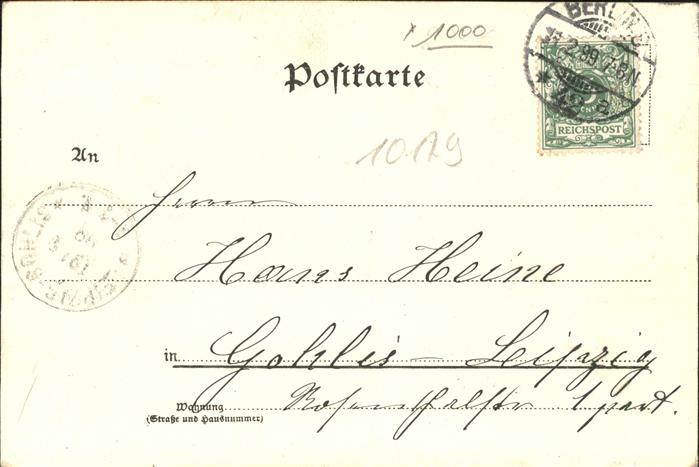 x 1000
BERLIN
2.99.7-8N.
* 42 a.
Postkarte
REICHSPOST
An
10179
Herrn
LEIPZIG-GOHLIS *
Hans Heine
in Gohlis-Leipzig
Wohnung
(Straße und Hausnummer)
1 part.